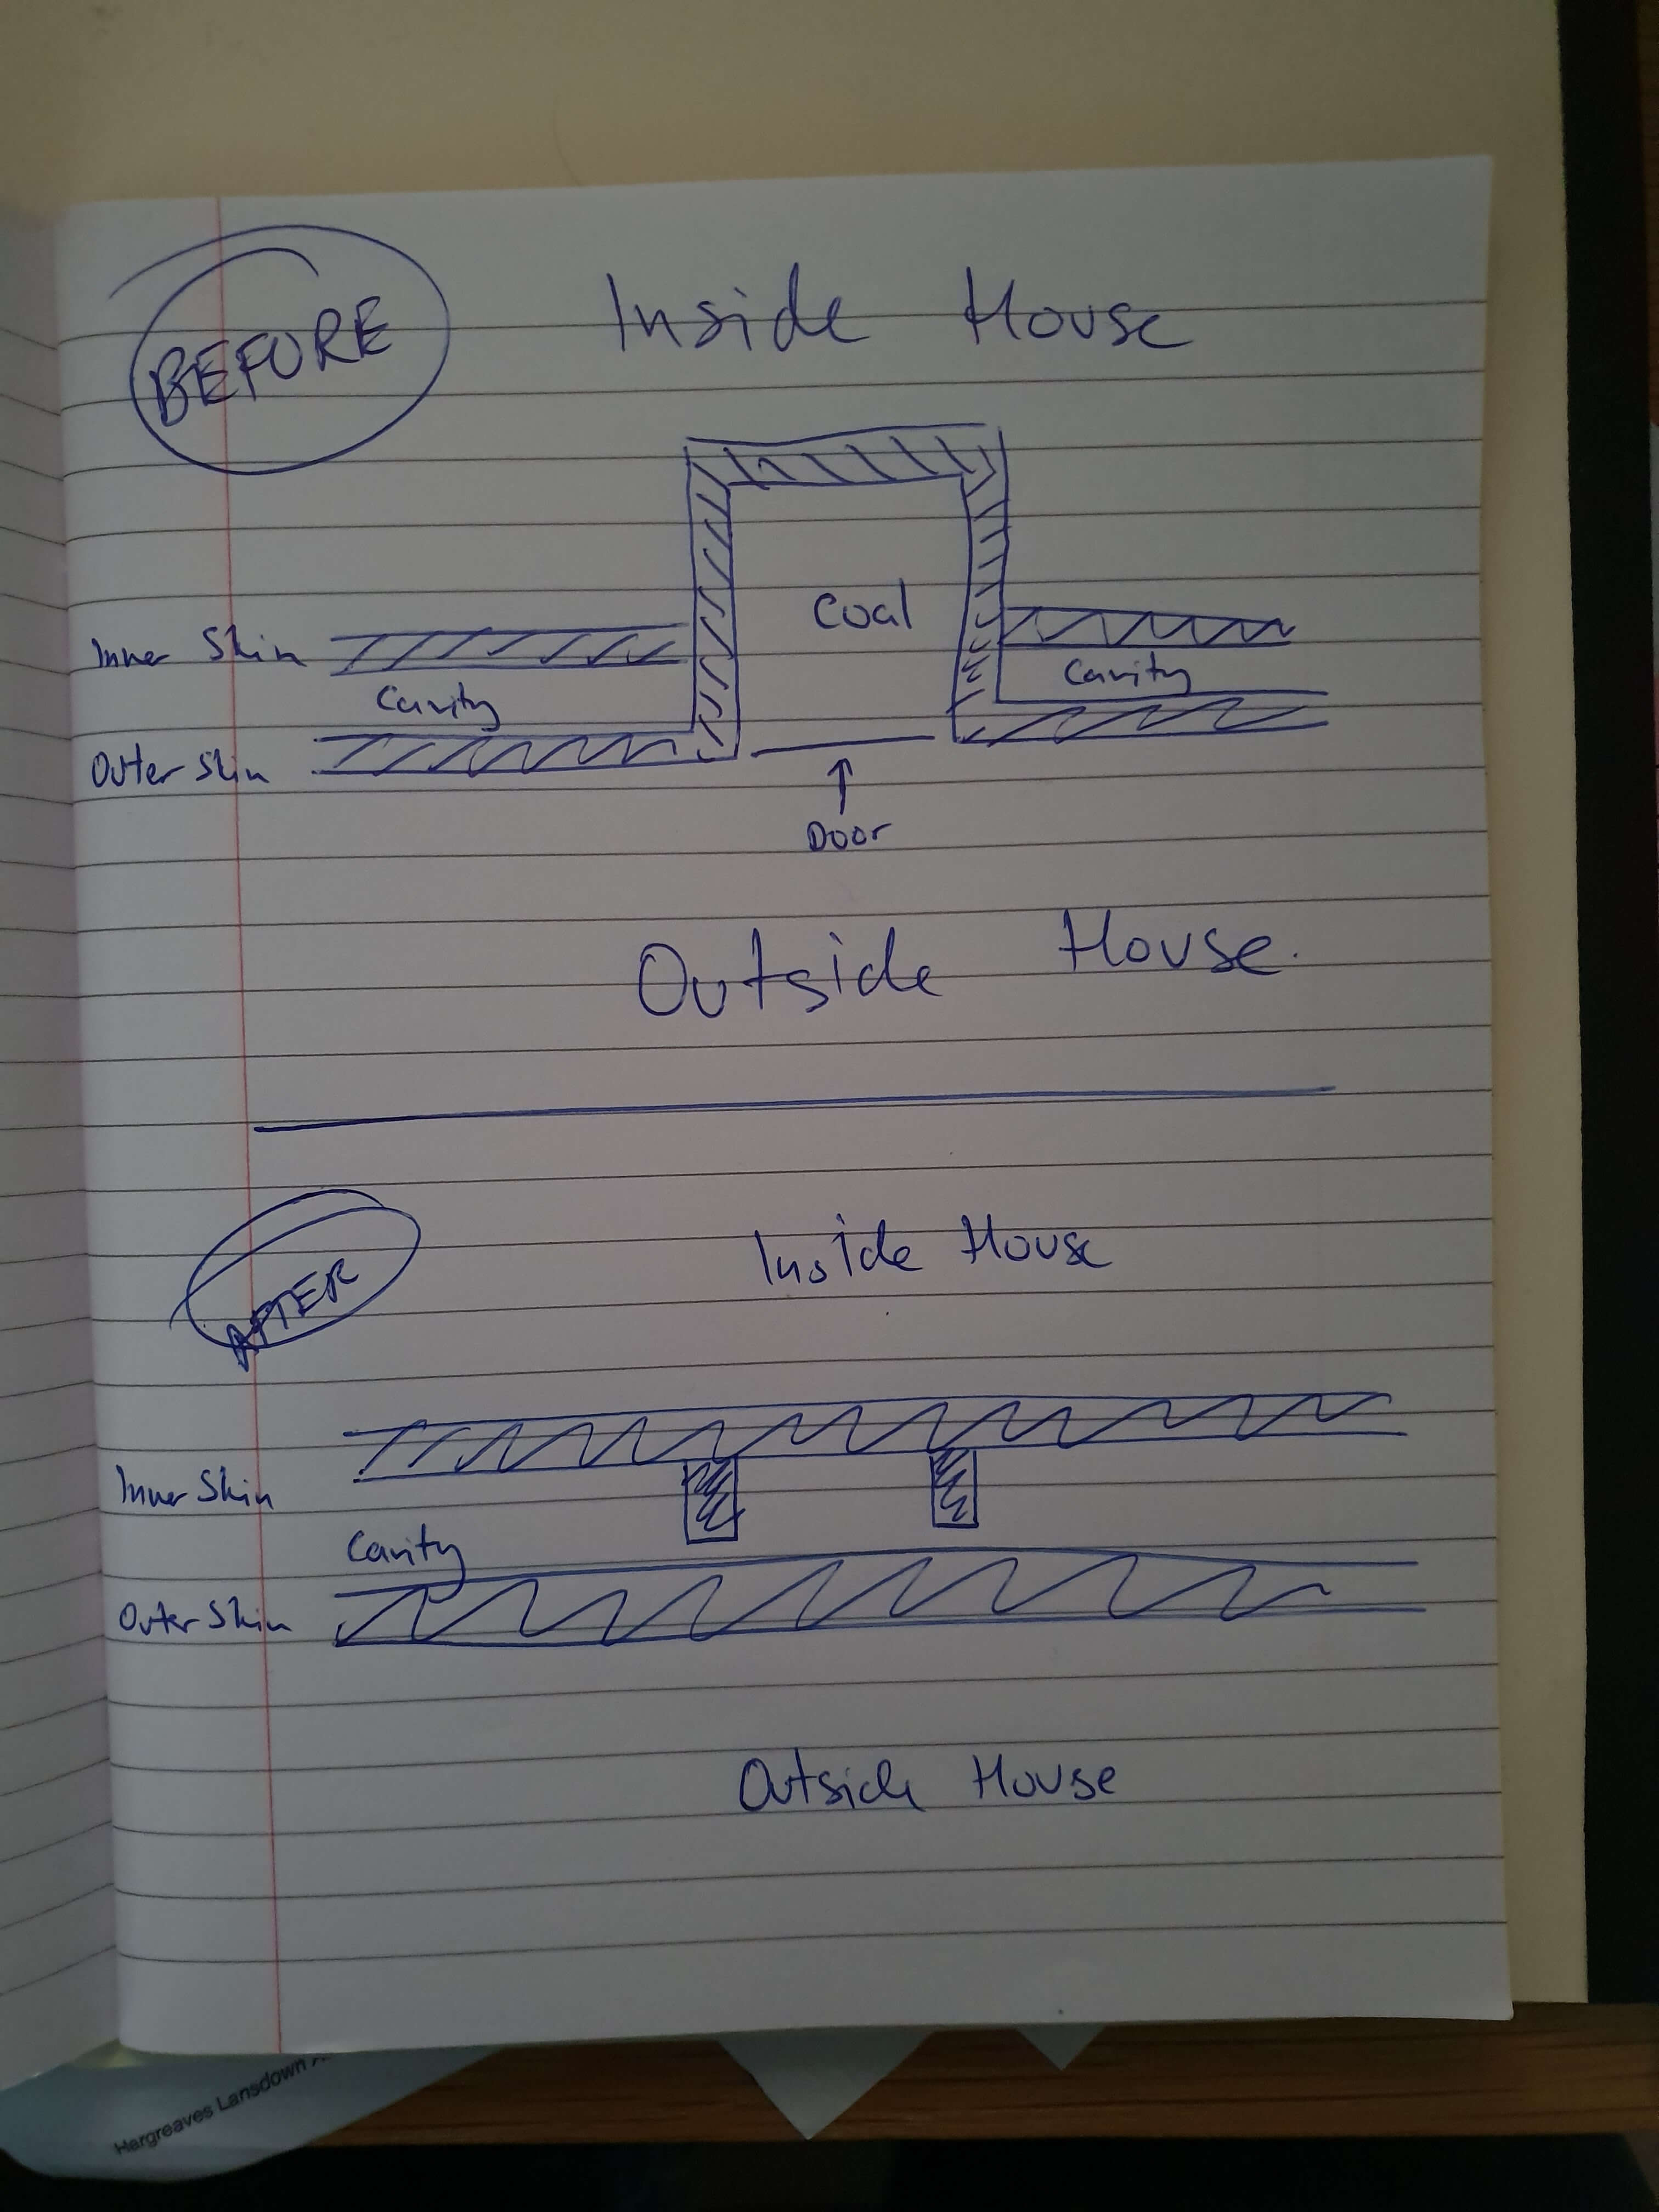 BEFORE
Inside House
Coal
Inner Skin
Cavity
Cavity
Outer Skin
Door
Outside House.
AFTER
Inside House
Inner Skin
Cavity
Outer Skin
Outside House
Hargreaves Lansdown